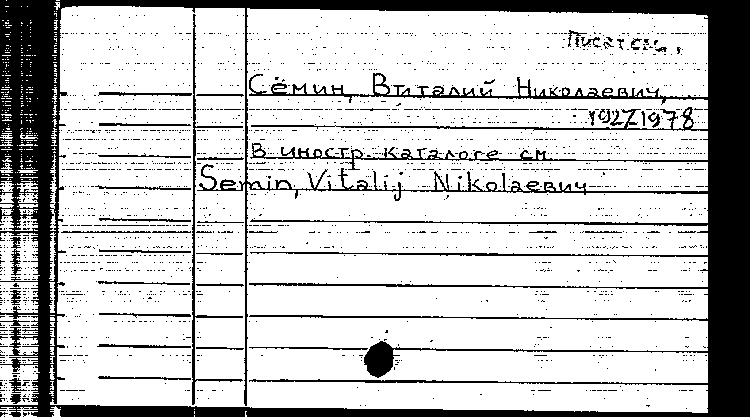 Писат.
Сёмин, Виталий Николаевич,
1927-1978
В иностр. каталоге см.
Semin, Vitalij Nikolaевич